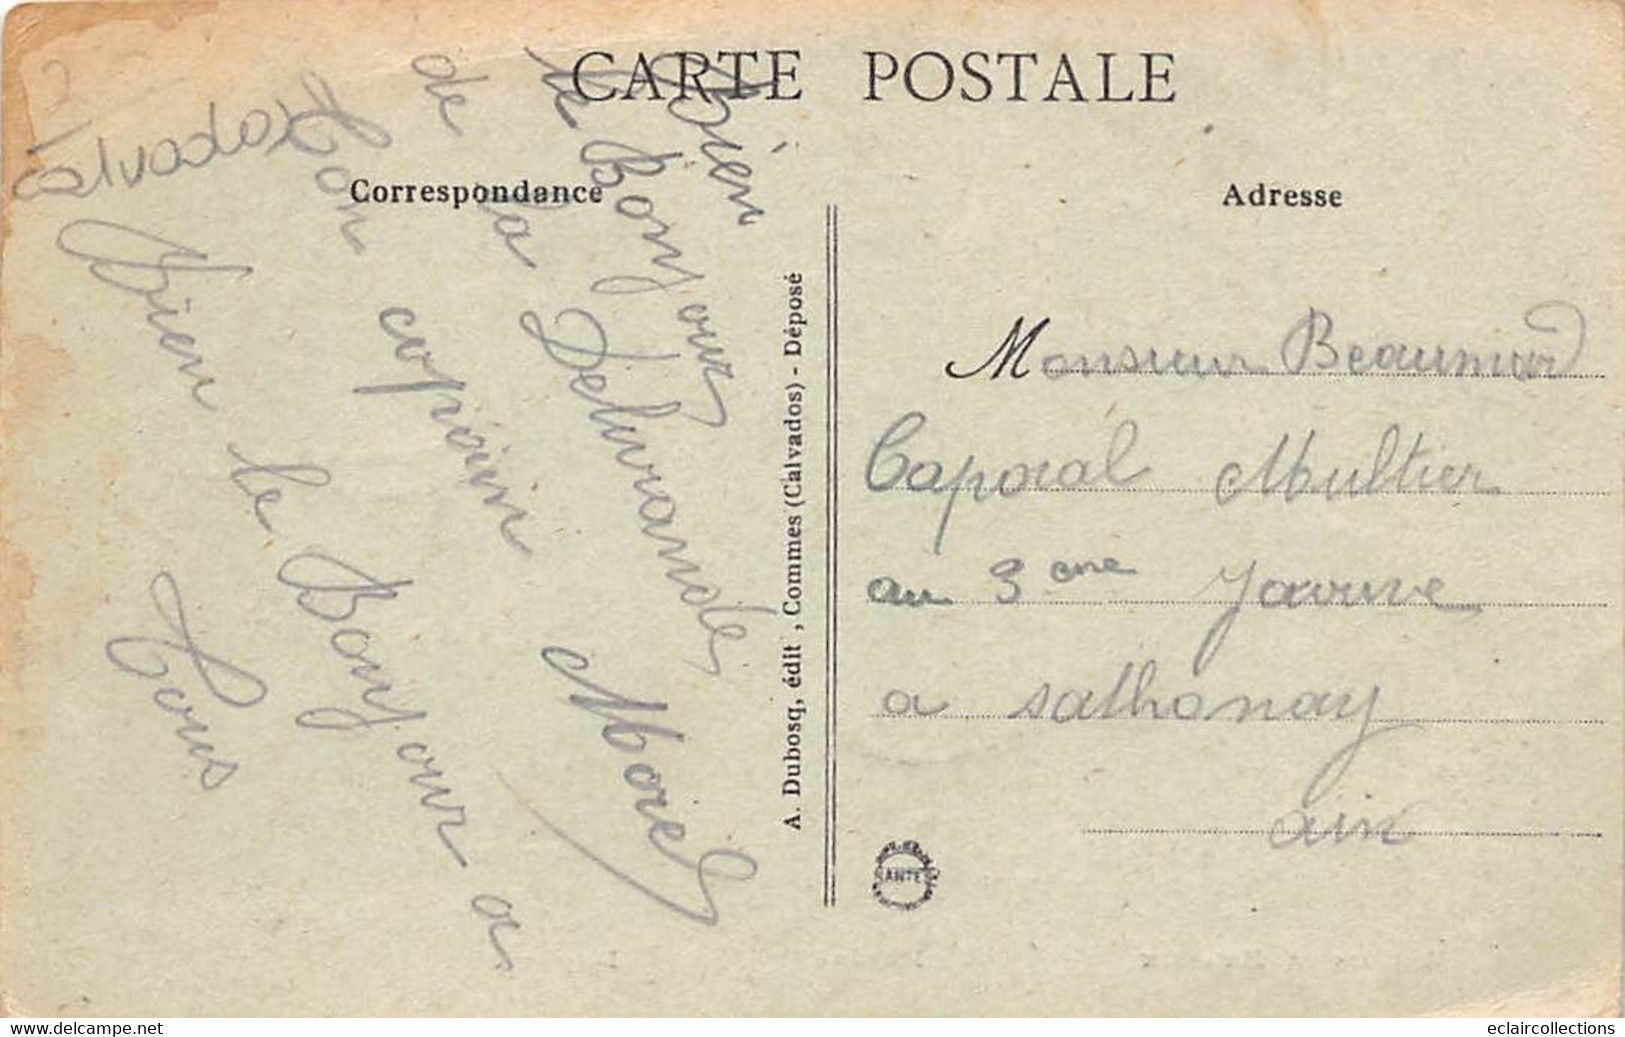 CARTE POSTALE
Correspondance
Adresse
Bien
le Bonjour
de la Delivrande
Ton copain Morel
Calvados
Bien le Bonjour a
Tous
A. Dubosq, édit, Commes (Calvados) - Déposé
Monsieur Beaumard
Caporal Multier
au 3 eme
a sathonay
ain
ANTE
delcampe.net
eclaircollections